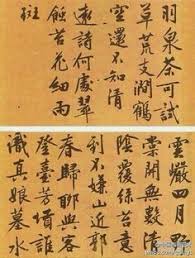 羽泉茶可試
草荒支澗鶴
空還不知清
遠詩何處翠
蝕苔花細雨
斑
雲巖四月野
棠開無數清
陰覆綠苔
利不嫌山近郭
春歸聊與客
登臺芳情誰
識真娘墓水